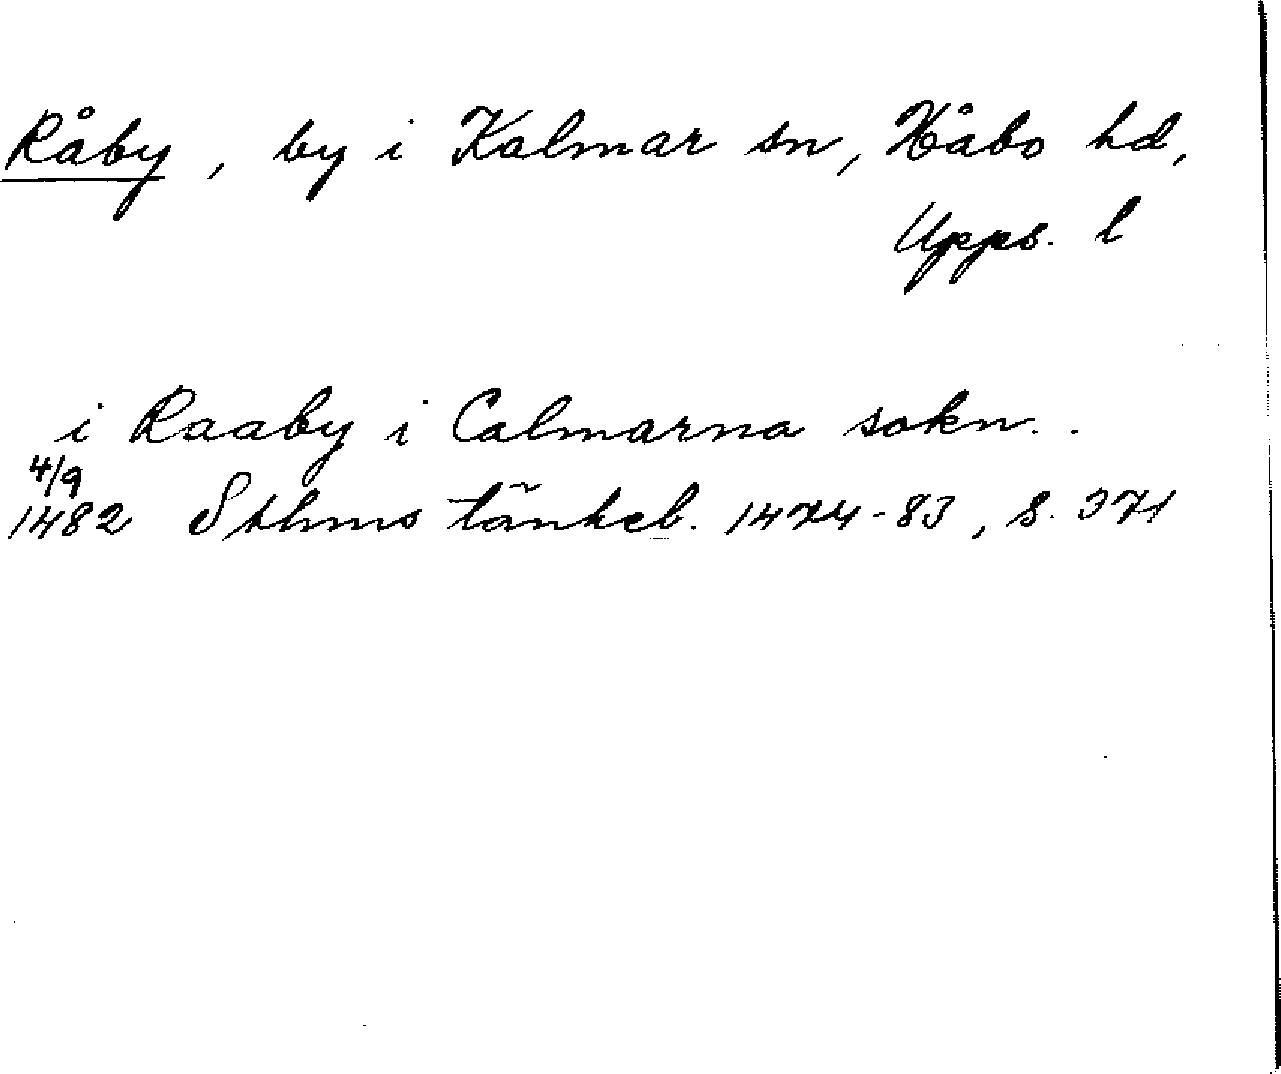 Råby, by i Kalmar sn, Håbo hd,
Upps. l
i Raaby i Calmarna sokn..
4/9
1482 Sthms tänkeb. 1474-83, s. 371